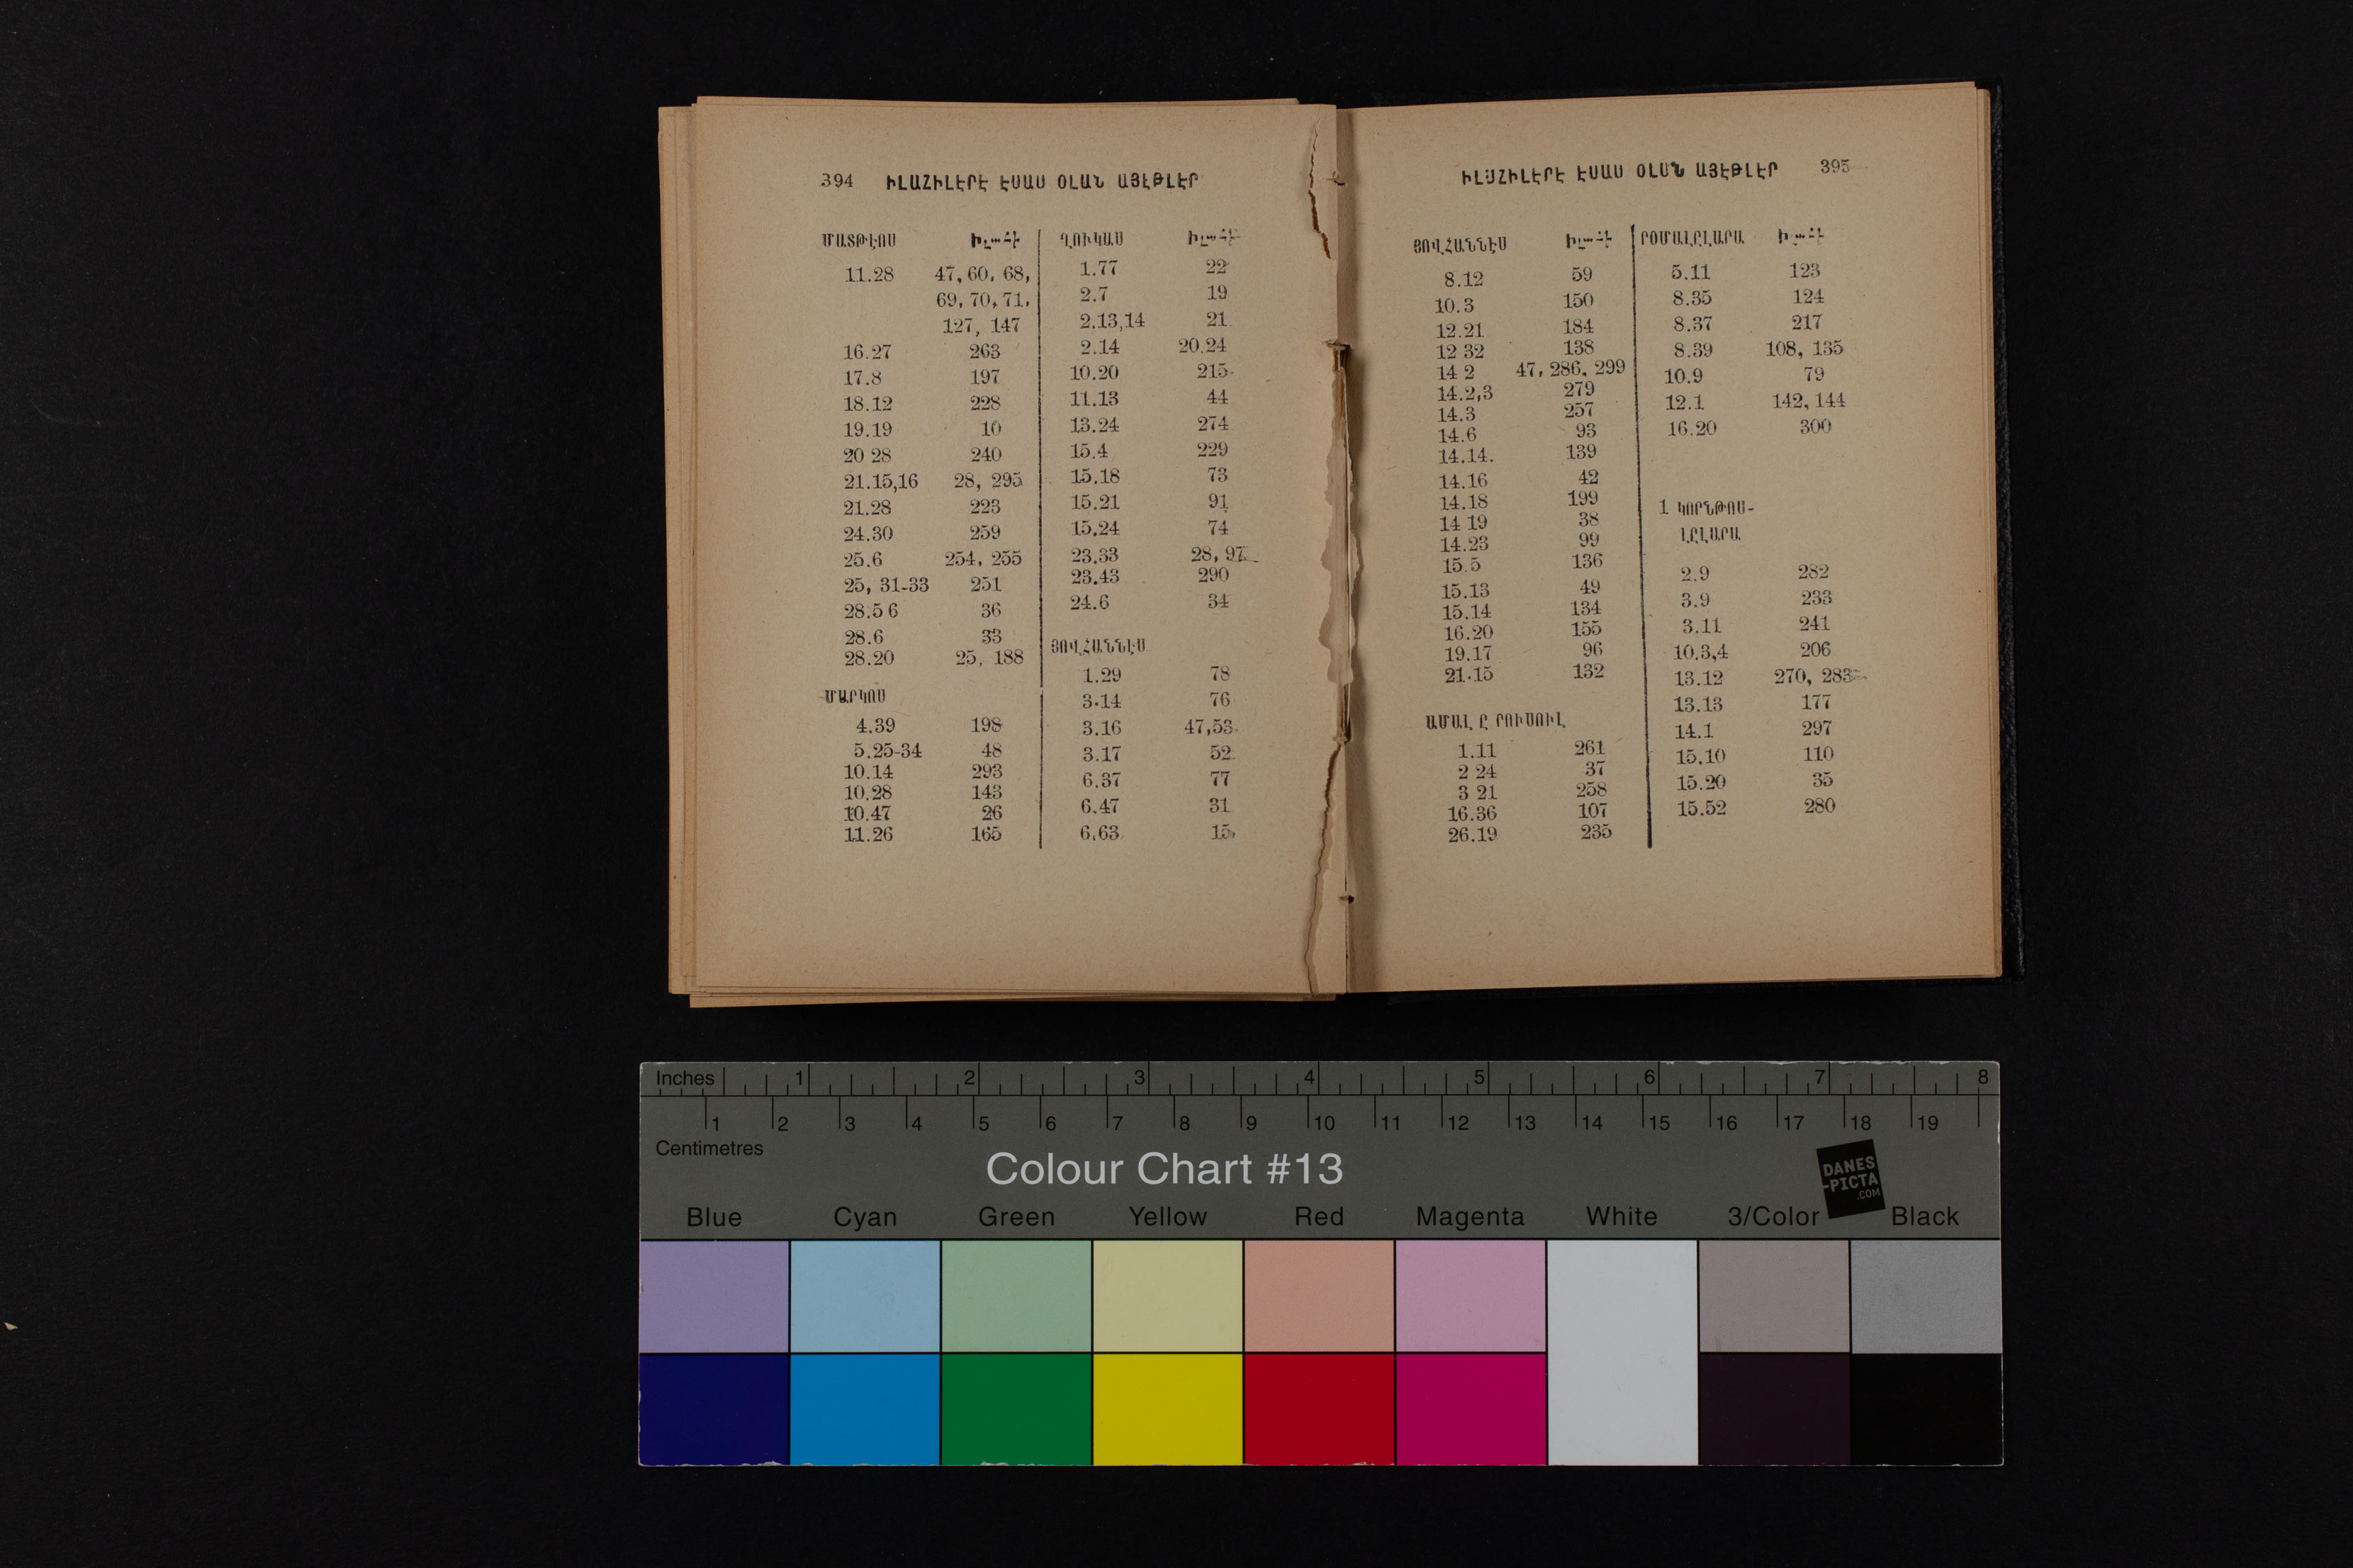 394 ԻԼԱՀԻԼԷՐԷ ԷՍԱՍ ՕԼԱՆ ԱՅԷԹԼԷՐ
ՄԱՏԹԷՈՍ Իլահի
11.28 47, 60, 68,
69, 70, 71,
127, 147
16.27 263
17.8 197
18.12 228
19.19 10
20 28 240
21.15,16 28, 295
21.28 223
24.30 259
25.6 254, 255
25, 31-33 251
28.5 6 36
28.6 33
28.20 25, 188
ՄԱՐԿՈՍ
4.39 198
5.25-34 48
10.14 293
10.28 143
10.47 26
11.26 165
ՂՈՒԿԱՍ Իլահի
1.77 22
2.7 19
2.13,14 21
2.14 20.24
10.20 215
11.13 44
13.24 274
15.4 229
15.18 73
15.21 91
15.24 74
23.33 28, 97
23.43 290
24.6 34
ՅՈՎՀԱՆՆԷՍ
1.29 78
3.14 76
3.16 47,53
3.17 52
6.37 77
6.47 31
6.63 15
ԻԼԱՀԻԼԷՐԷ ԷՍԱՍ ՕԼԱՆ ԱՅԷԹԼԷՐ 395
ՅՈՎՀԱՆՆԷՍ Իլահի
8.12 59
10.3 150
12.21 184
12 32 138
14 2 47, 286, 299
14.2,3 279
14.3 257
14.6 93
14.14. 139
14.16 42
14.18 199
14 19 38
14.23 99
15.5 136
15.13 49
15.14 134
16.20 155
19.17 96
21.15 132
ԱՄԱԼ Ը ՐՈՒՍՈՒԼ
1.11 261
2 24 37
3 21 258
16.36 107
26.19 235
ՐՕՄԱԼԸԼԱՐԱ Իլահի
5.11 123
8.35 124
8.37 217
8.39 108, 135
10.9 79
12.1 142, 144
16.20 300
1 ԿՈՐՆԹՈՍ-
ԼԸԼԱՐԱ
2.9 282
3.9 233
3.11 241
10.3,4 206
13.12 270, 283
13.13 177
14.1 297
15.10 110
15.20 35
15.52 280
Inches 1 2 3 4 5 6 7 8
1 2 3 4 5 6 7 8 9 10 11 12 13 14 15 16 17 18 19
Centimetres
Colour Chart #13
DANES
-PICTA
.COM
Blue Cyan Green Yellow Red Magenta White 3/Color Black